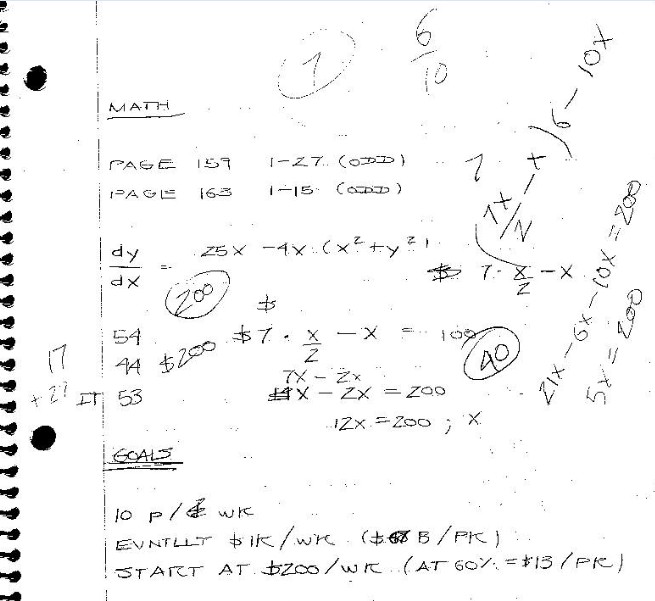 7
6
10
MATH
PAGE 159 1-27 (ODD)
PAGE 163 1-15 (ODD)
7
7x/2 - x ) 6 - 10x
dy/dx = 25x - 4x (x² + y²)
200
$
$ 7 · x/2 - x
54 $7 · x/2 - x = 100
40
44 $200
7x - 2x
17
+27 IT 53
x - 2x = 200
12x = 200 ; x
21x - 6x - 10x = 200
5x = 200
GOALS
10 P/ WK
EVNTLLY $1K/WK ($ B/PK)
START AT $200/WK (AT 60% = $13/PK)